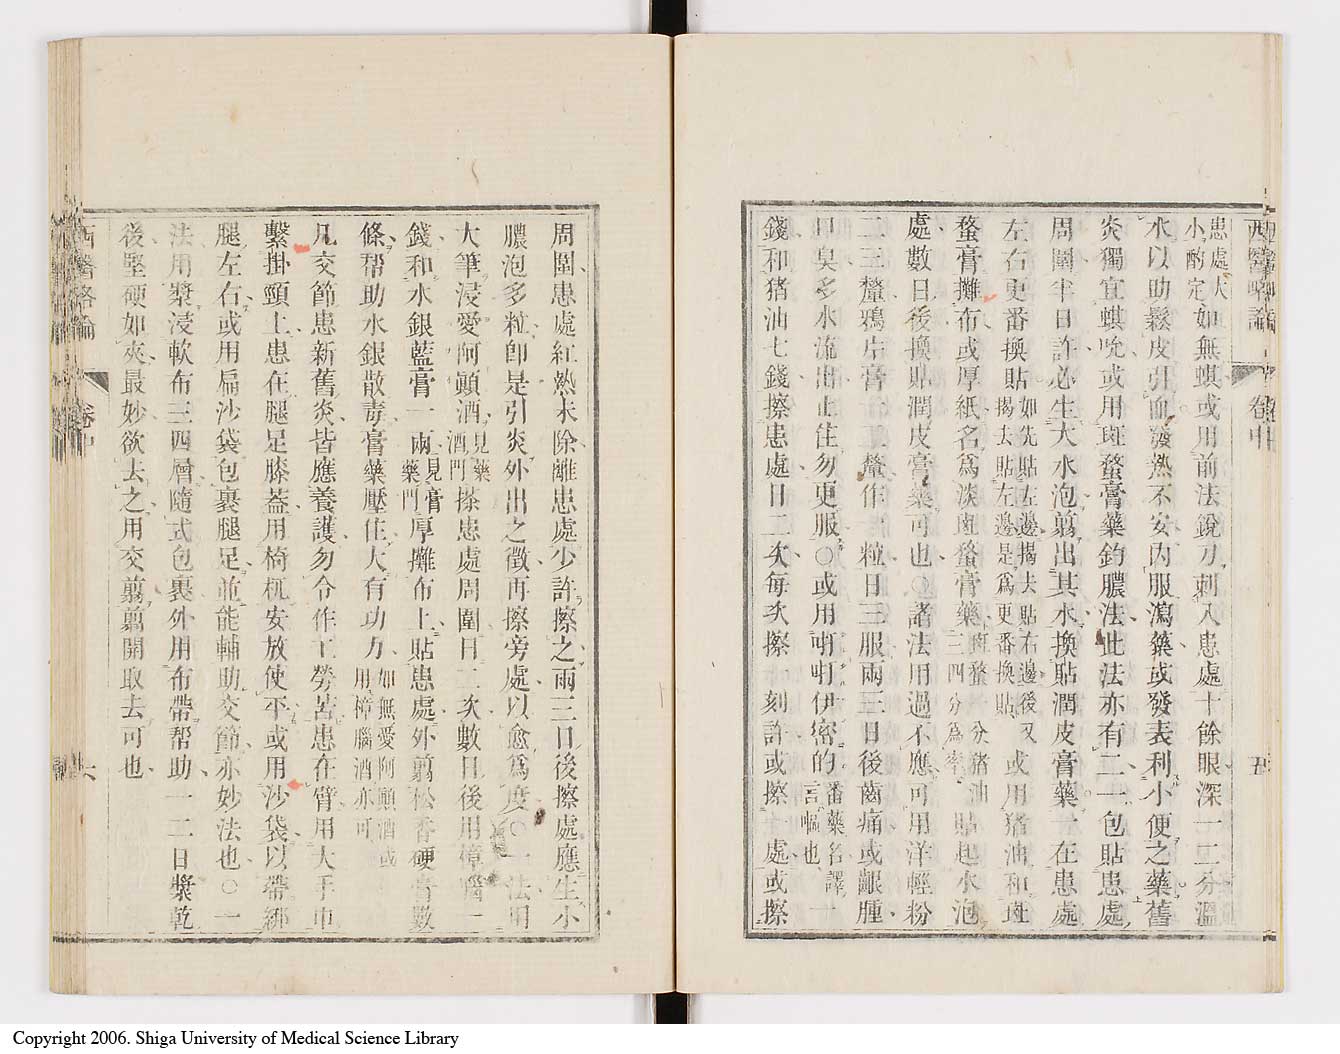 西醫略論 卷中 五
患處大小酌定如無蜞或用前法銳刀刺入患處十餘眼深一二分溫
水以助鬆皮引血發熱不安內服瀉藥或發表利小便之藥舊
炎獨宜蜞吮或用斑蝥膏藥釣膿法此法亦有二一包貼患處
周圍半日許必生大水泡剪出其水換貼潤皮膏藥一在患處
左右更番換貼如先貼左邊揭去貼右邊後又揭去貼左邊是爲更番換貼或用猪油和斑
蝥膏攤布或厚紙名爲淡斑蝥膏藥斑蝥一分猪油三四分爲率貼起水泡
處數日後換貼潤皮膏藥可也○諸法用過不應可用洋輕粉
二三釐鴉片膏一二釐作一粒日三服兩三日後齒痛或齦腫
口臭多水流出止住勿更服○或用㕶㕶伊密的番藥名譯言嘔也一
錢和猪油七錢擦患處日二次每次擦一刻許或擦一處或擦
周圍患處紅熱未除離患處少許擦之兩三日後擦處應生小
膿泡多粒卽是引炎外出之徵再擦旁處以愈爲度○一法用
大筆浸愛阿顚酒見藥酒門搽患處周圍日二次數日後用樟腦一
錢和水銀藍膏一兩見膏藥門厚攤布上貼患處外剪松香硬膏數
條帮助水銀散毒膏藥壓住大有功力如無愛阿顚酒或用樟腦酒亦可
凡交節患新舊炎皆應養護勿令作工勞苦患在臂用大手巾
繫掛頸上患在腿足膝蓋用椅杌安放使平或用沙袋以帶綁
腿左右或用扁沙袋包裹腿足並能輔助交節亦妙法也○一
法用漿浸軟布三四層隨式包裹外用布帶帮助一二日漿乾
後堅硬如夾最妙欲去之用交剪剪開取去可也
西醫略論 卷中 六
Copyright 2006. Shiga University of Medical Science Library